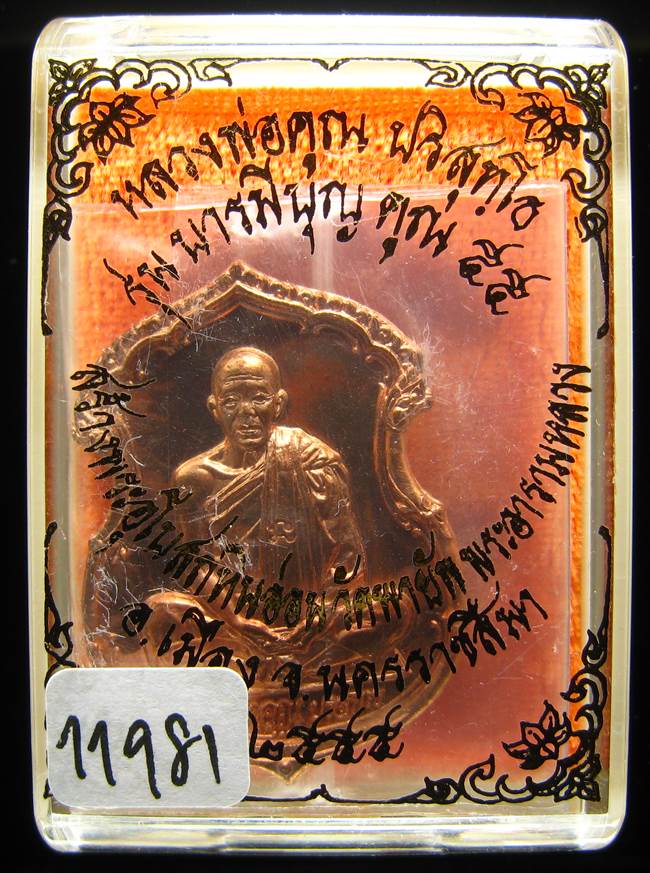 หลวงพ่อคุณ ปริสุทฺโธ
รุ่น บารมีบุญ คุณ ๕๕
สร้างพระอุโบสถ วัดพายัพ พระอารามหลวง
อ.เมือง จ.นครราชสีมา
๒๕๕๕
11981